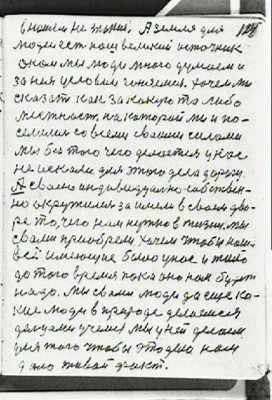 в нашем не знании. А земля для 124
людей ест наш великий источник
о ком мы люди много думаем и
за ней целовим гоняемся. хочем мы
сказат как за какую та либо
местност, на которай мы и по-
селилис со всеми своими силами
мы без того чего делается у нас
не искали для этого дела дорогу.
А своего индивидуално-собствен-
но окружился за имели в своем дво-
ре то, чего нам нужно в жизни. мы
свами приобрели хочем чтобы наш-
ей имеющие было у нас и живо
до того время пока оно нам будет
надо. мы с вами люди да еще ка-
кие люди в природе делаемся
делцами учемся мы у ней делам
для того чтобы это дело нам
дало живой факт.